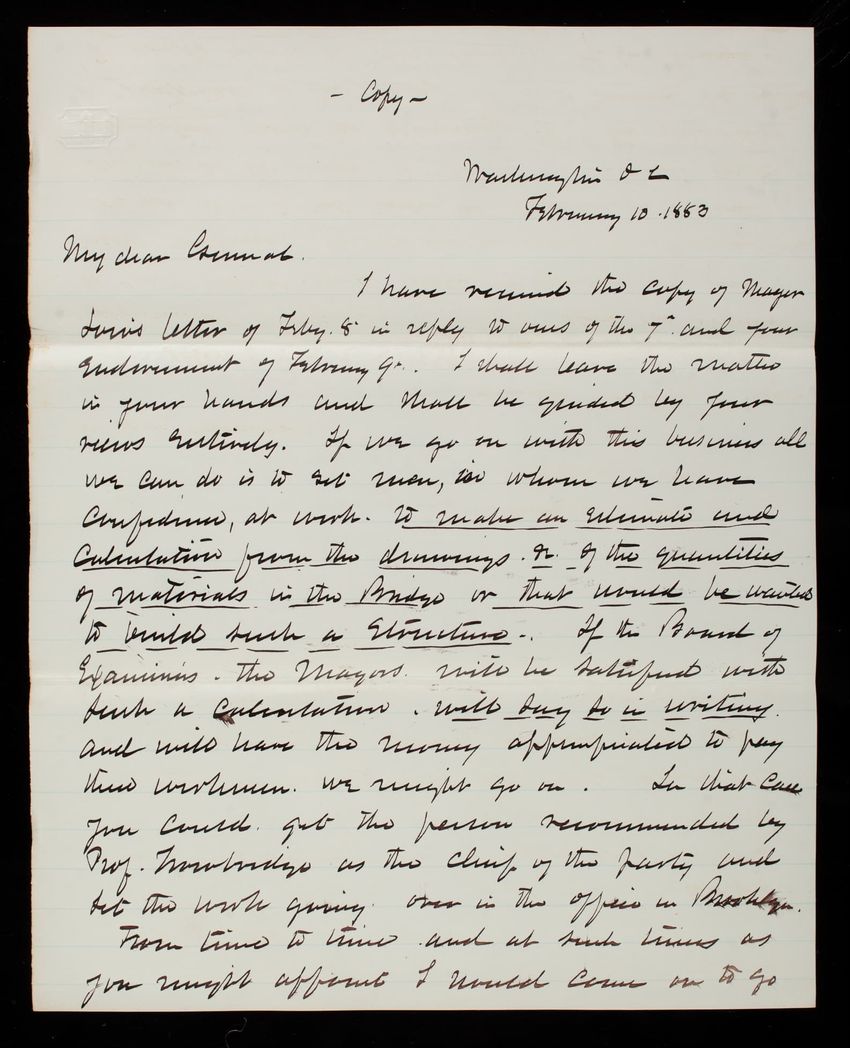 - Copy -
Washington D C
February 10. 1883
My dear General.
I have received the copy of Mayor
Low's letter of Feby. 8 in reply to ours of the 7th and your
Endorsement of February 9th. I shall leave the matter
in your hands and shall be guided by your
views entirely. If we go on with this business all
we can do is to set men, in whom we have
confidence, at work. to make an estimate and
Calculation from the drawings. &c. of the quantities
of materials in the Bridge or that would be wanted
to build such a Structure-. If the Board of
Examiners. the Mayors. will be satisfied with
such a Calculation. will say so in writing.
and will have the money appropriated to pay
these workmen. we might go on. In that case
you could. get the person recommended by
Prof. Trowbridge as the chief of the party and
set the work going. over in the office in Brooklyn.
From time to time. and at such times as
you might appoint I would come on to go